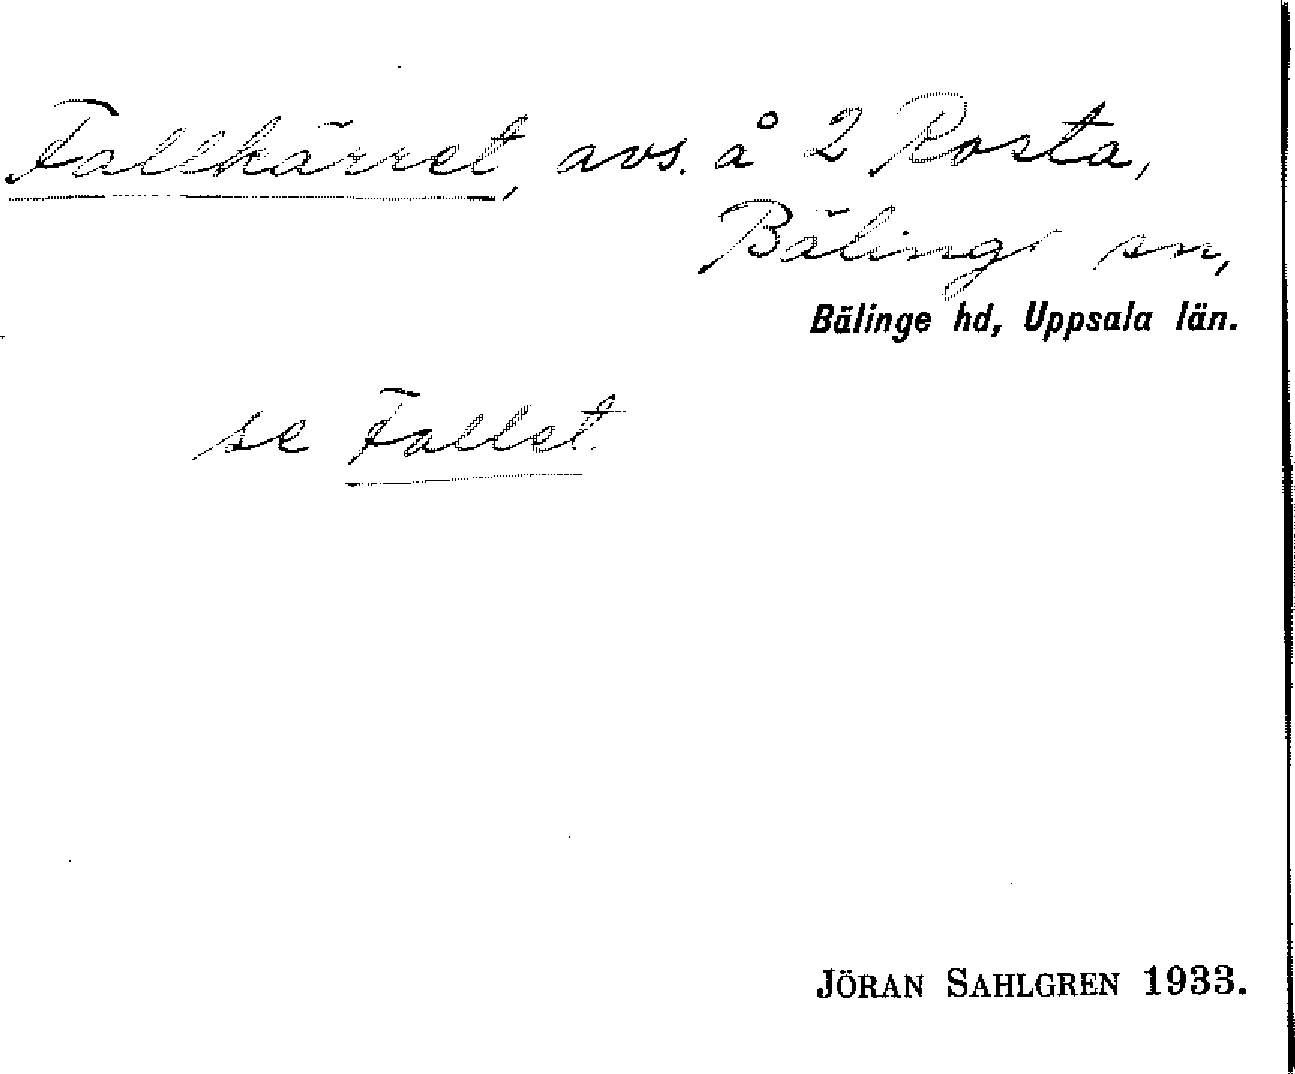 Fallkärret, avs. å 2 Rosta,
Bälinge sn,
Bälinge hd, Uppsala län.
se Fallet.
JÖRAN SAHLGREN 1933.